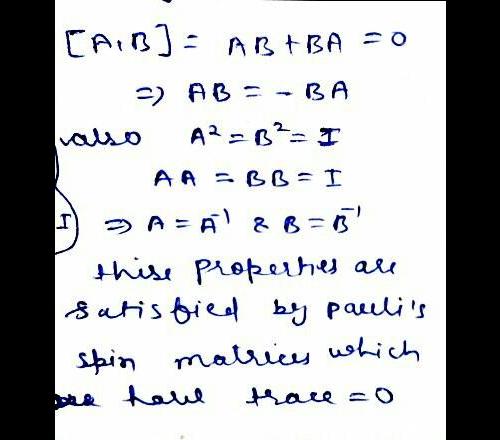 [A,B] = AB + BA = 0
⇒ AB = - BA
also A² = B² = I
AA = BB = I
I ⇒ A = A⁻¹ & B = B⁻¹
these properties are
satisfied by pauli's
spin matrices which
have trace = 0